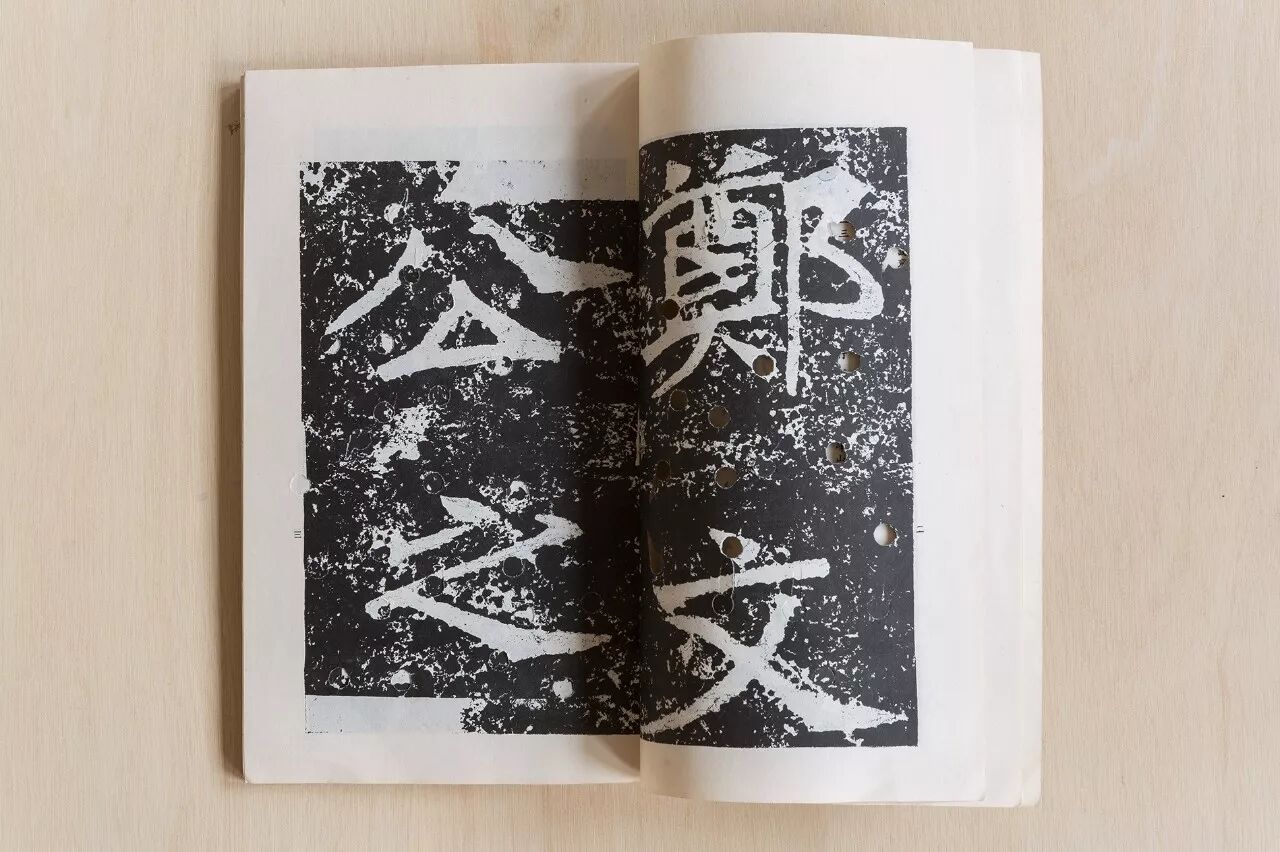 鄭文
公之
二
三